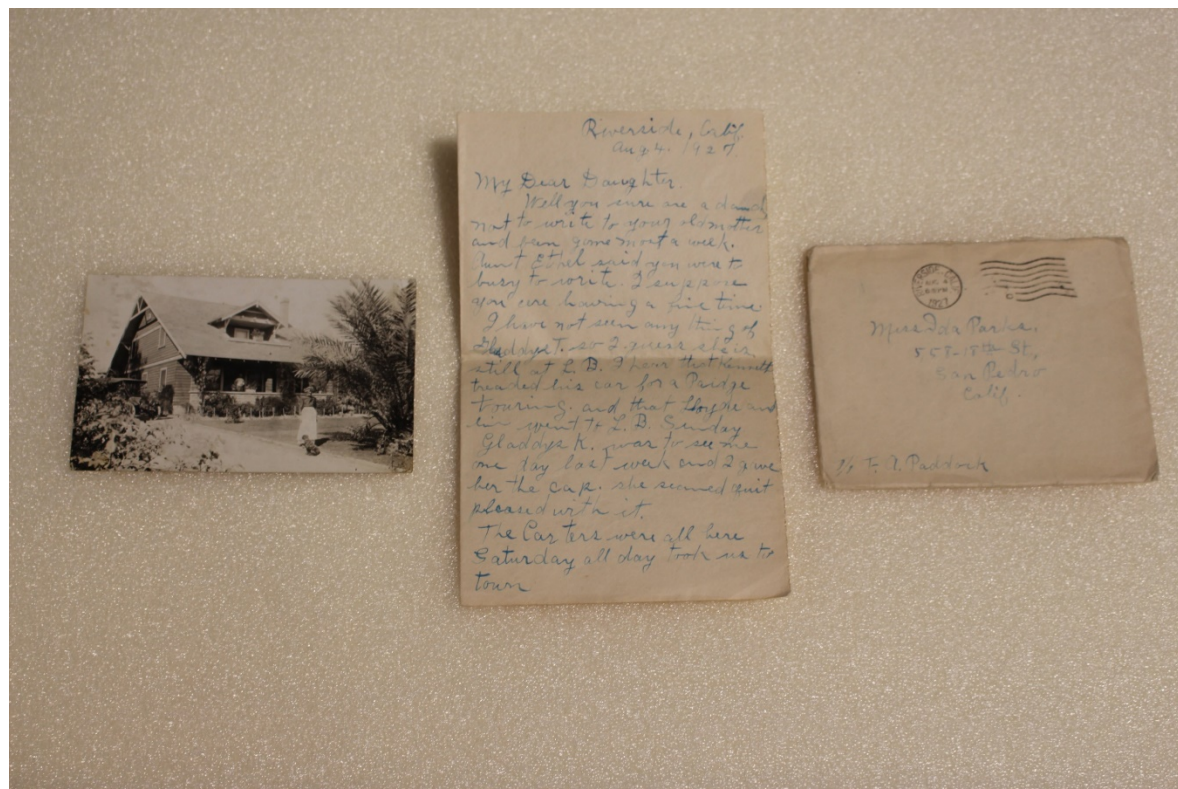 Riverside, Calif.
Aug 4. 1927
My Dear Daughter.
Well you sure are a
not to write to your old mother
and been gone most a week.
Aunt Ethel said you were to
busy to write. I suppose
you are having a fine time
I have not seen any thing of
Gladdys T. so I guess she is
still at L. B. I hear that Kenneth
traded his car for a Paidge
Touring. and that and
went to L. B. Sunday
Gladdys K. was to see me
one day last week and I gave
her the cap. she seemed quit
pleased with it.
The Carters were all here
Saturday all day took us to
town
RIVERSIDE, CALIF.
AUG 4
1927
Miss Ida Parks.
558-18th St,
San Pedro
Calif.
Paddock